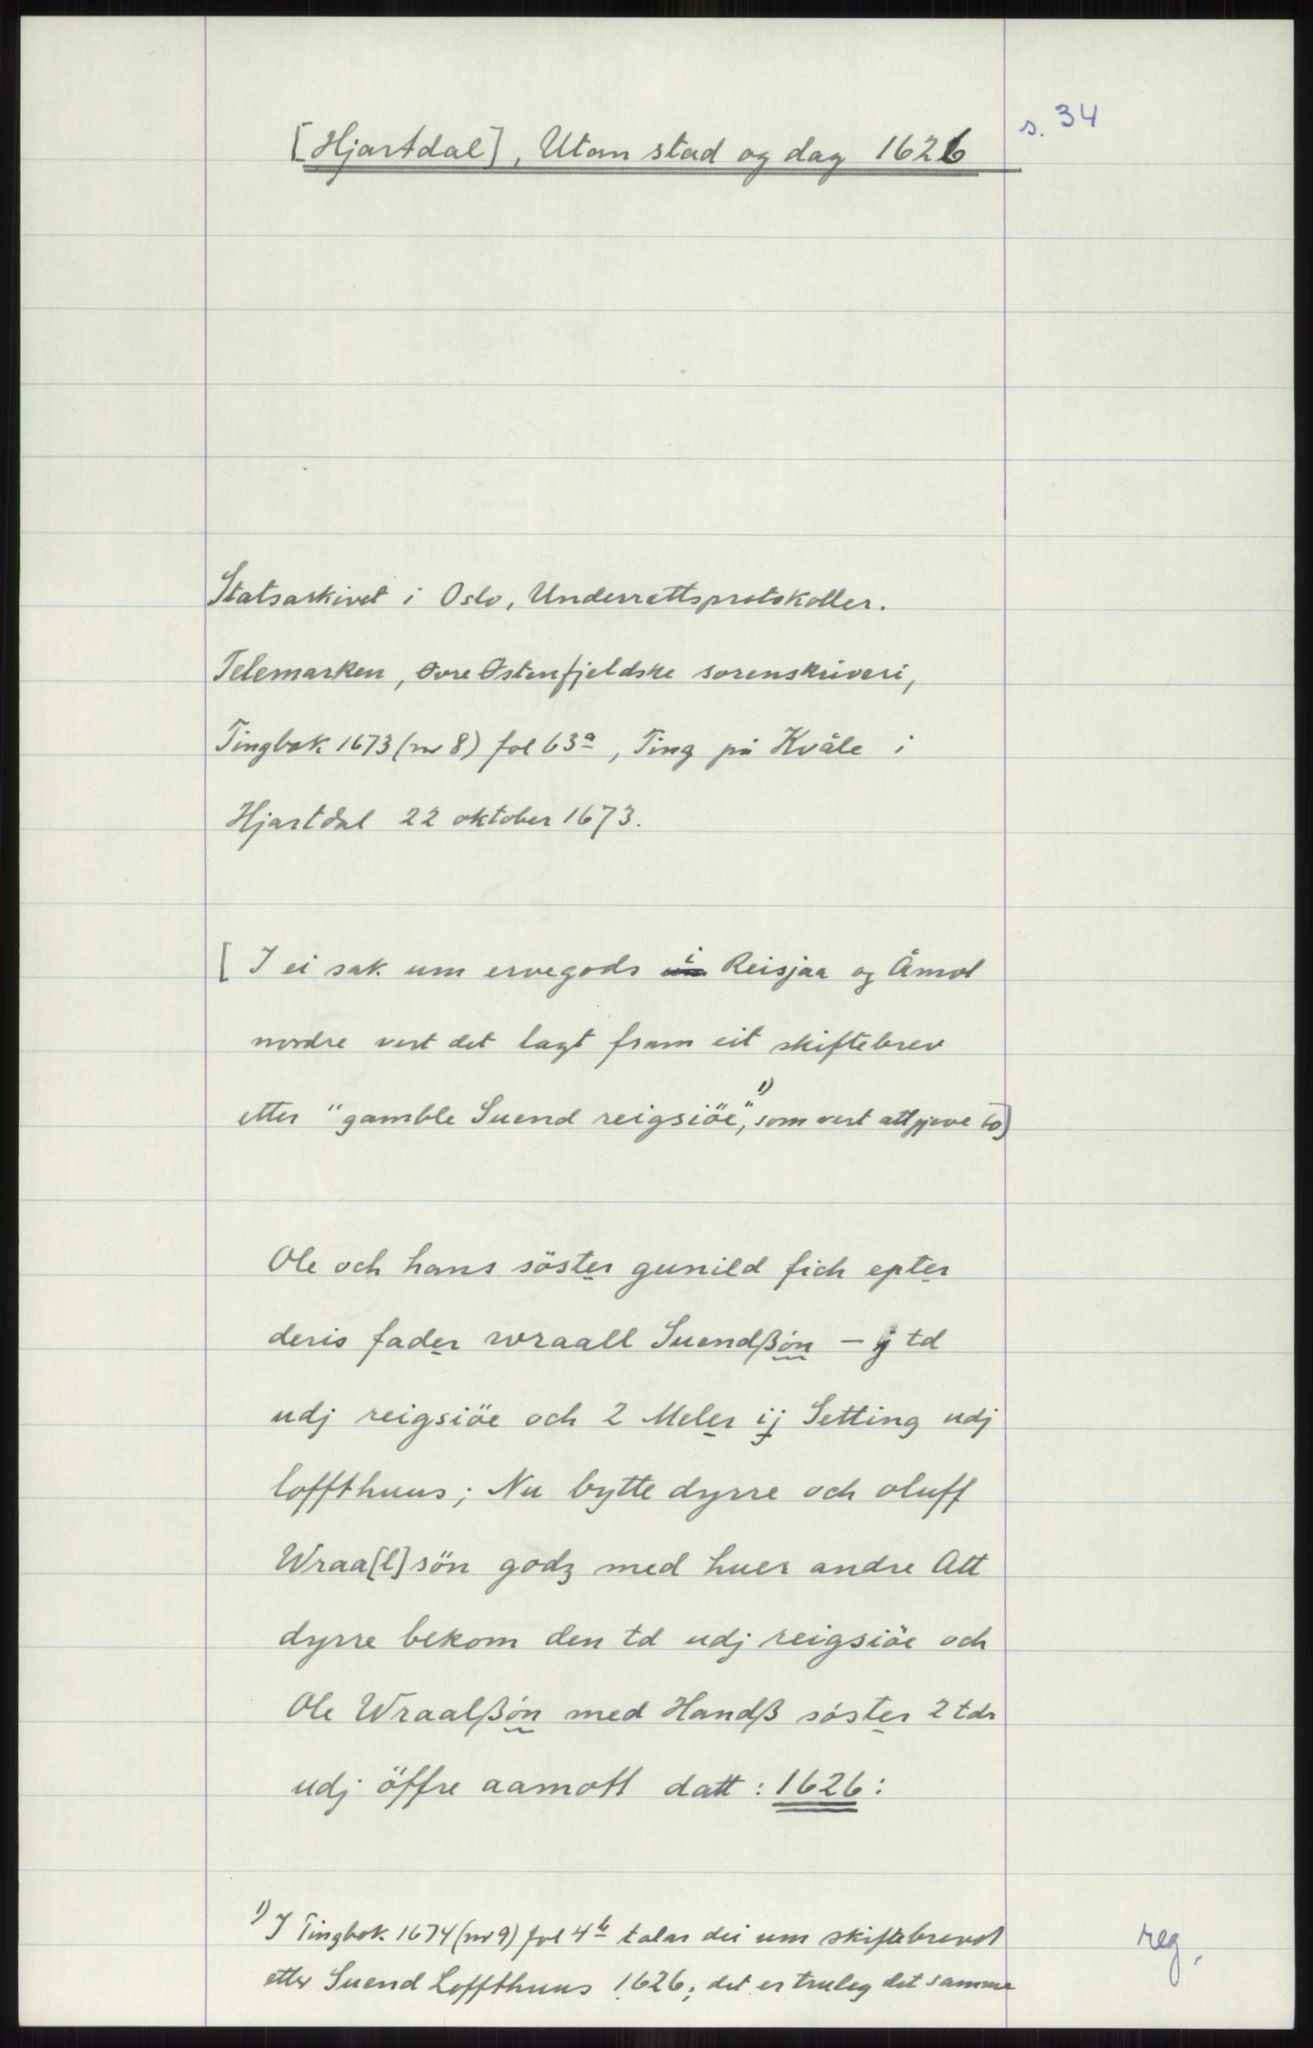 s. 34
[Hjartdal], Utan stad og dag 1626
Statsarkivet i Oslo, Underrettsprotokoller.
Telemarken, Øvre Østenfjeldske sorenskriveri,
Tingbok 1673 (nr 8) fol 63a, Ting på Kvåle i
Hjartdal 22 oktober 1673.
[ I ei sak um ervegods i Reisjaa og Åmot
nordre vert det lagt fram eit skiftebrev
etter "gamble Suend reigsiöe", 1) som vert attgjeve so]
Ole och hans söster gunild fich epter
deris fader wraall Suendßön - j td
udj reigsiöe och 2 Meler ij Setting udj
loffthuus; Nu bytte dyrre och oluff
Wraa[l]sön godz med huer andre Att
dyrre bekom den td udj reigsiöe och
Ole Wraalßön med Handß söster 2 tdr
udj öffre aamott datt: 1626:
1) I Tingbok 1674 (nr 9) fol 4b talar dei um skiftebrevet
etter Suend Loffthuus 1626; det er truleg det samme
reg.